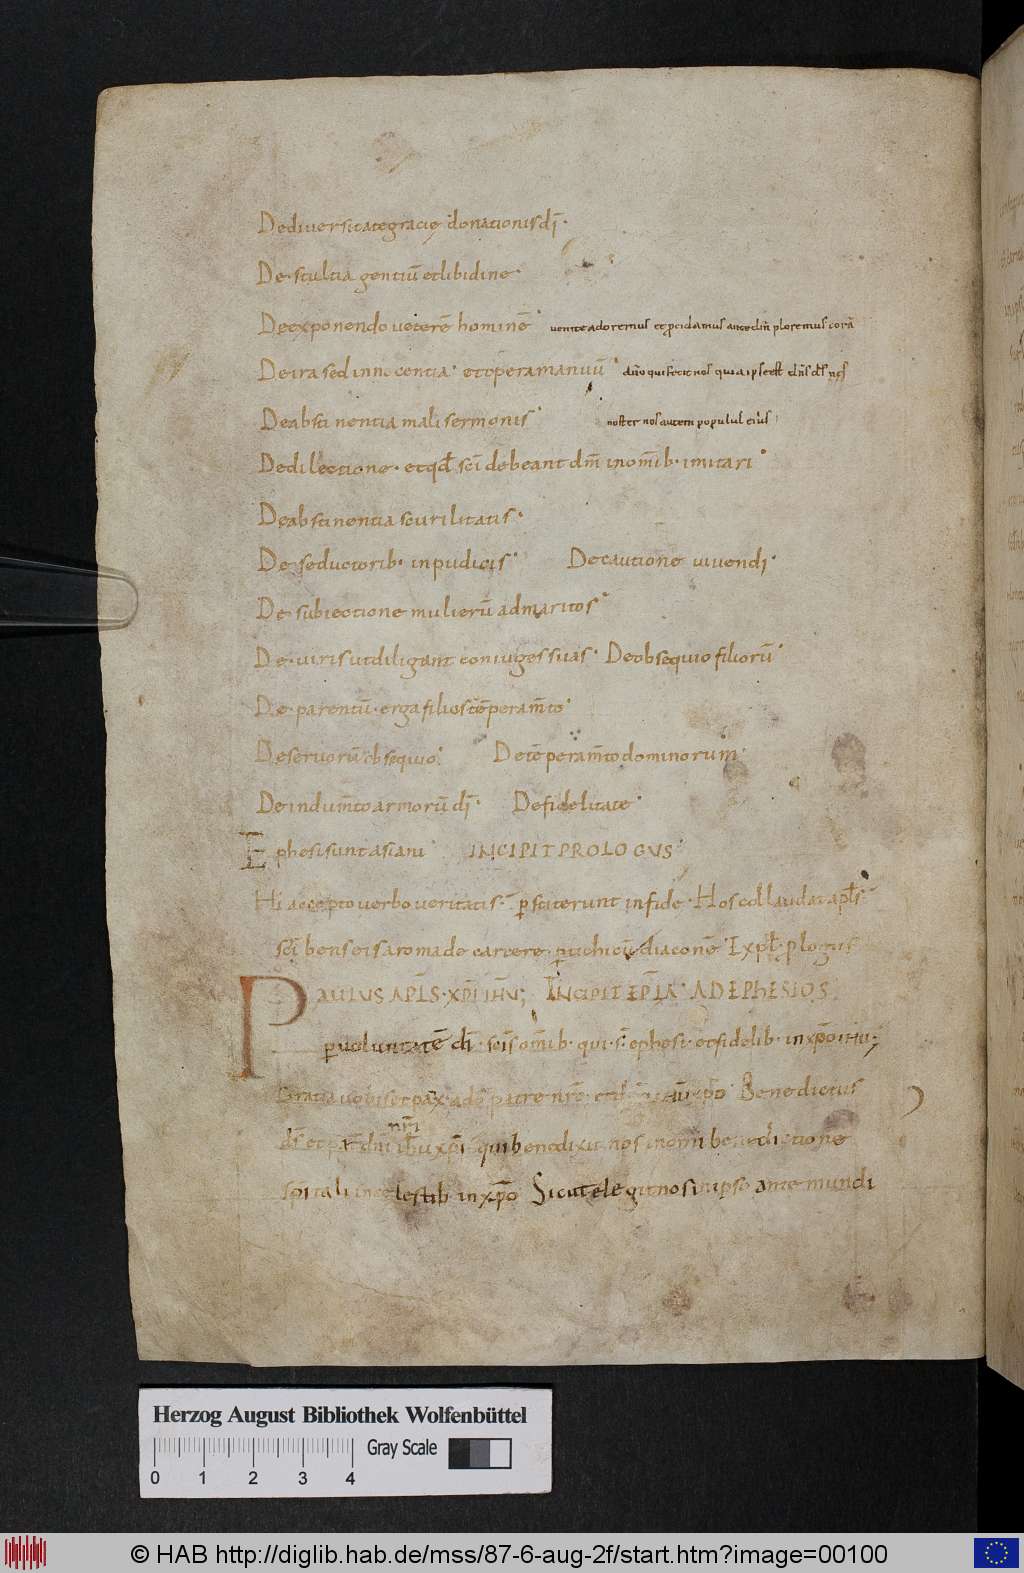 De diversitate gracie donationis dī.
De stultia gentiū et libidine.
De exponendo veterē hominē. venite adoremus et procidamus ante dm̄ ploremus corā
De ira sed innocentia. et operam manuū. dn̄o qui fecit nos quia ipse est dn̄s ds̄
De abstinentia mali sermonis. noster nos autem populus eius
De dilectione. et qđ sc̄i debeant dm̄ in omīb. imitari.
De abstinentia scurilitatis.
De seductorib. inpudicis. De cautione vivendi.
De subiectione mulierū ad maritos.
De viris ut diligant coniuges suas. De obsequio filiorū.
De parentū. erga filios tēperam̄to.
De servorū obsequio. De tēperam̄to dominorum.
De indum̄to armorū dī. De fidelitate.
Ephesi sunt asiani. INCIPIT PROLOGUS.
Hi accepto verbo veritatis. perstiterunt in fide. Hos collaudat apl̄s.
scribens eis a roma de carcere. p tichicū diaconē. Expl̄. prologus
PAULUS APL̄S. XPĪ IHŪ; INCIPIT EPL̄A AD EPHESIOS
per voluntatē dī. scīs omīb. qui s̄ ephesi. et fidelib. in xp̄o ihū;
Gratia vobis et pax. a dō patre nr̄o et xp̄o Benedictus
ds̄ et pat̄ dn̄i nr̄i ihū xpī. qui benedixit nos in omī benedictione
sp̄itali in celestib in xp̄o Sicut elegit nos in ipso ante mundi
Herzog August Bibliothek Wolfenbüttel
Gray Scale
0 1 2 3 4
© HAB http://diglib.hab.de/mss/87-6-aug-2f/start.htm?image=00100